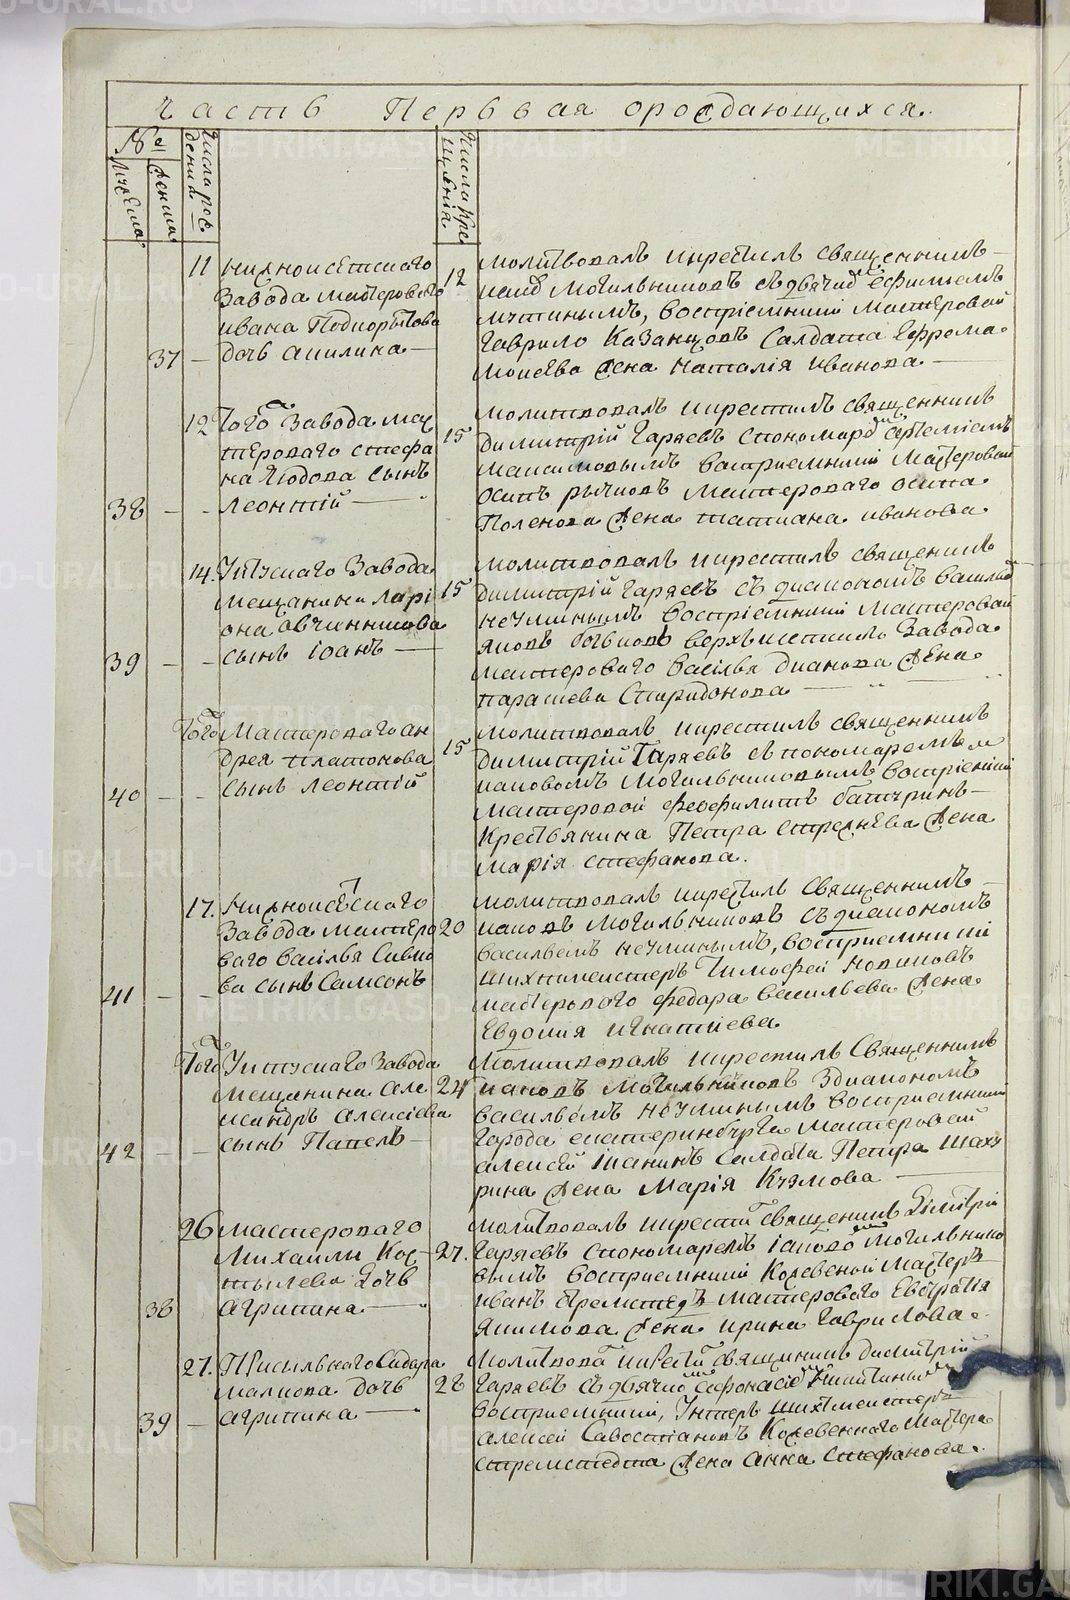 часть Первая о рождающихся
№а
мужеска
женска
Числа рож
дения
Числа кре
щения
11 нижноисетскаго
завода мастероваго
ивана Подкорытова
37 — дочь акилина —
12
молитвовалъ икрестилъ священникъ
иаковъ могильниковъ сдьячкомъ ефимьемъ
мутинымъ, воспріемники мастеровой
Гаврило Казанцовъ Салдата Ефрема
Моисеева жена наталія иванова —
12 того завода мас
тероваго стефа
на сынъ
38 — — леонтій —
15
молитвовалъ икрестилъ священникъ
димитрій Гаряевъ спономаремъ артеміемъ
максимовымъ воспріемники мастеровой
осипъ рычковъ мастероваго осипа
Поленова жена татиана иванова
14. Уктускаго завода
мещанина ларі
она овчинникова
39 — — сынъ іоанъ —
15
молитвовалъ икрестилъ священникъ
димитрій Гаряевъ съ диакономъ василіемъ
нечкинымъ воспріемники мастеровой
яковъ верхъисетского завода
мастероваго василья дианова жена
парасковья Спиридонова —
Того Мастероваго ан
дрея платонова
40 — — сынъ леонтій
15
молитвовалъ икрестилъ священникъ
димитрій Гаряевъ спономаремъ и
каковомъ могильниковымъ воспріемники
мастеровой феофилактъ батуринъ —
Крестьянина Петра стрежнева жена
марія стефанова.
17. Нижноисетскаго
завода мастеро
ваго василья Сивко
41 — — ва сынъ Самсонъ
20
молитвовалъ икрестилъ священникъ —
иаковъ могильниковъ съ диакономъ
васильемъ нечкинымъ, воспріемники
шихтмейстеръ Тимофей новиковъ
мастероваго федора васильева жена
Евдокия игнатиева
Того Уктускаго завода
мещанина Але
ксандръ алексіева
42 — — сынъ Павелъ —
24
Молитвовалъ икрестилъ Священникъ
иаковъ Могильниковъ здиакономъ
васильемъ нечкинымъ воспріемники
города екатеринбурга мастеровой
алексей шанинъ Салдата Петра шаху
рина жена Марія Кузмова —
26 мастероваго
Михаили Кос
тылева дочь
38 агрипина —
27.
молитвовалъ икрестилъ священникъ Димитрій
Гаряевъ спономаремъ іаковомъ могильнико
вымъ воспріемники Кожевеной мастеръ
иванъ мастероваго Евстратия
якимова жена ирина Гаврилова.
27. Писыльнаго Сидара
малкова дочь
39 — агрипина —
28
Молитвовалъ икрестилъ священникъ димитрій
Гаряевъ съ дьячкомъ афонасіемъ никитинымъ
воспріемники, Унтеръ шихтмейстеръ
алексей Савостіановъ Кожевеннаго мастера
жена анна Стефанова.